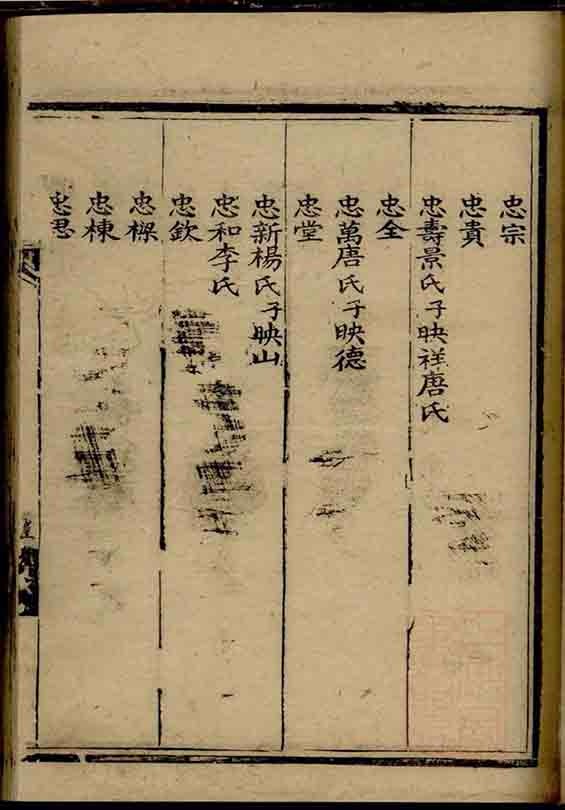 忠宗
忠貴
忠壽景氏子映祥唐氏
忠全
忠萬唐氏子映德
忠堂
忠新楊氏子映山
忠和李氏
忠欽
忠樑
忠棟
忠君